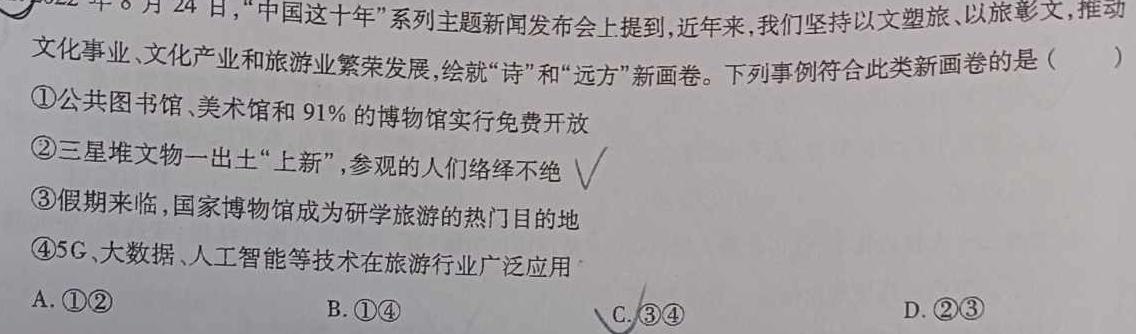 年 8 月 24 日,“中国这十年”系列主题新闻发布会上提到,近年来,我们坚持以文塑旅、以旅彰文,推动
文化事业、文化产业和旅游业繁荣发展,绘就“诗”和“远方”新画卷。下列事例符合此类新画卷的是(　　)
①公共图书馆、美术馆和 91% 的博物馆实行免费开放
②三星堆文物一出土“上新”,参观的人们络绎不绝
③假期来临,国家博物馆成为研学旅游的热门目的地
④5G、大数据、人工智能等技术在旅游行业广泛应用
A. ①② B. ①④ C. ③④ D. ②③